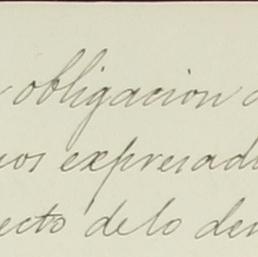 obligacion
expresad
ecto de lo de